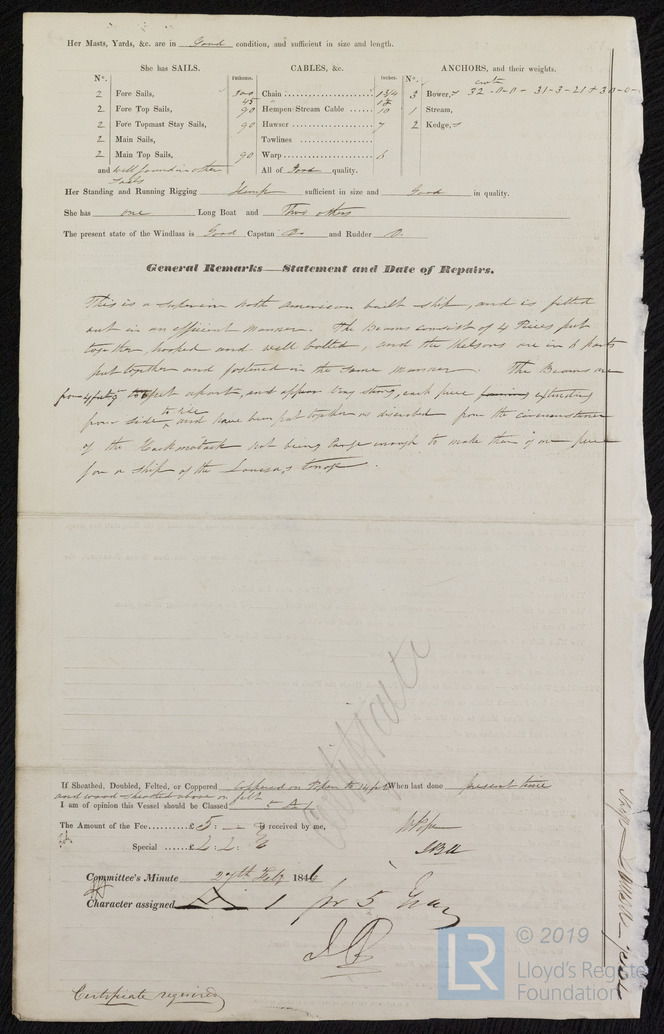 Her Masts, Yards, &c. are in Good condition, and sufficient in size and length.
She has SAILS. CABLES, &c. ANCHORS, and their weights.
N°. Fathoms. Inches. N°. cwts
2 Fore Sails, 300 Chain 1 3/4 3 Bower, 32-0-0 - 31-3-21 + 30-0-0
45
2 Fore Top Sails, 90 Hempen Stream Cable 10 1 Stream,
2 Fore Topmast Stay Sails, 90 Hawser 7 2 Kedge,
2 Main Sails, Towlines
2 Main Top Sails, 90 Warp 6
and well found in other All of Good quality.
Sails
Her Standing and Running Rigging Hemp sufficient in size and Good in quality.
She has one Long Boat and Two others
The present state of the Windlass is Good Capstan Do and Rudder Do
General Remarks—Statement and Date of Repairs.
This is a superior North American built ship, and is fitted
out in an efficient manner. The Beams consist of 4 Pieces put
together, hooked and well bolted, and the Kelsons are in 6 parts
put together and fastened in the same manner. The Beams are
from feet apart, and appear very strong, each piece extending
from side to side, and have been put together as described from the circumstance
of the Hackmatack not being large enough to make them of one piece
for a ship of the Louisa's tonnage.
Certificate
If Sheathed, Doubled, Felted, or Coppered Coppered on When last done present time
and wood sheathed above on felt
I am of opinion this Vessel should be Classed 5 A 1
The Amount of the Fee £ 5: – received by me,
Special £ 2: 2:
Committee's Minute 27th Feby 1846
Character assigned A 1 for 5 Years
Certificate required
© 2019
LR
Lloyd's Register
Foundation